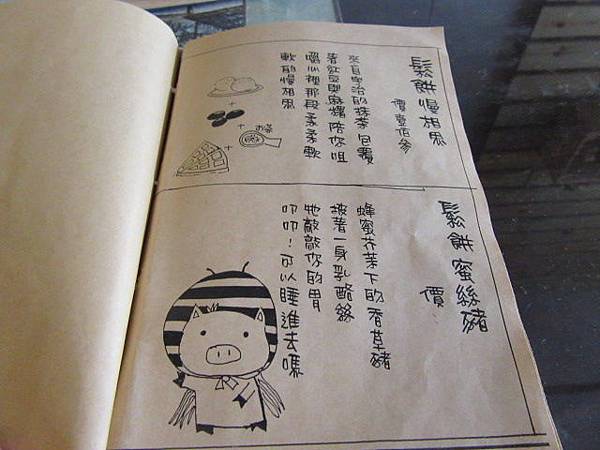 鬆餅慢相思
價壹佰參
來自宇治的抹茶包覆
著紅豆與麻糬陪你咀
嚼心裡那段柔柔軟
軟的慢相思
抹茶
鬆餅蜜絲豬
價
蜂蜜芥茉下的香草豬
披著一身乳酪絲
牠敲敲你的胃
叩叩！可以睡進去嗎